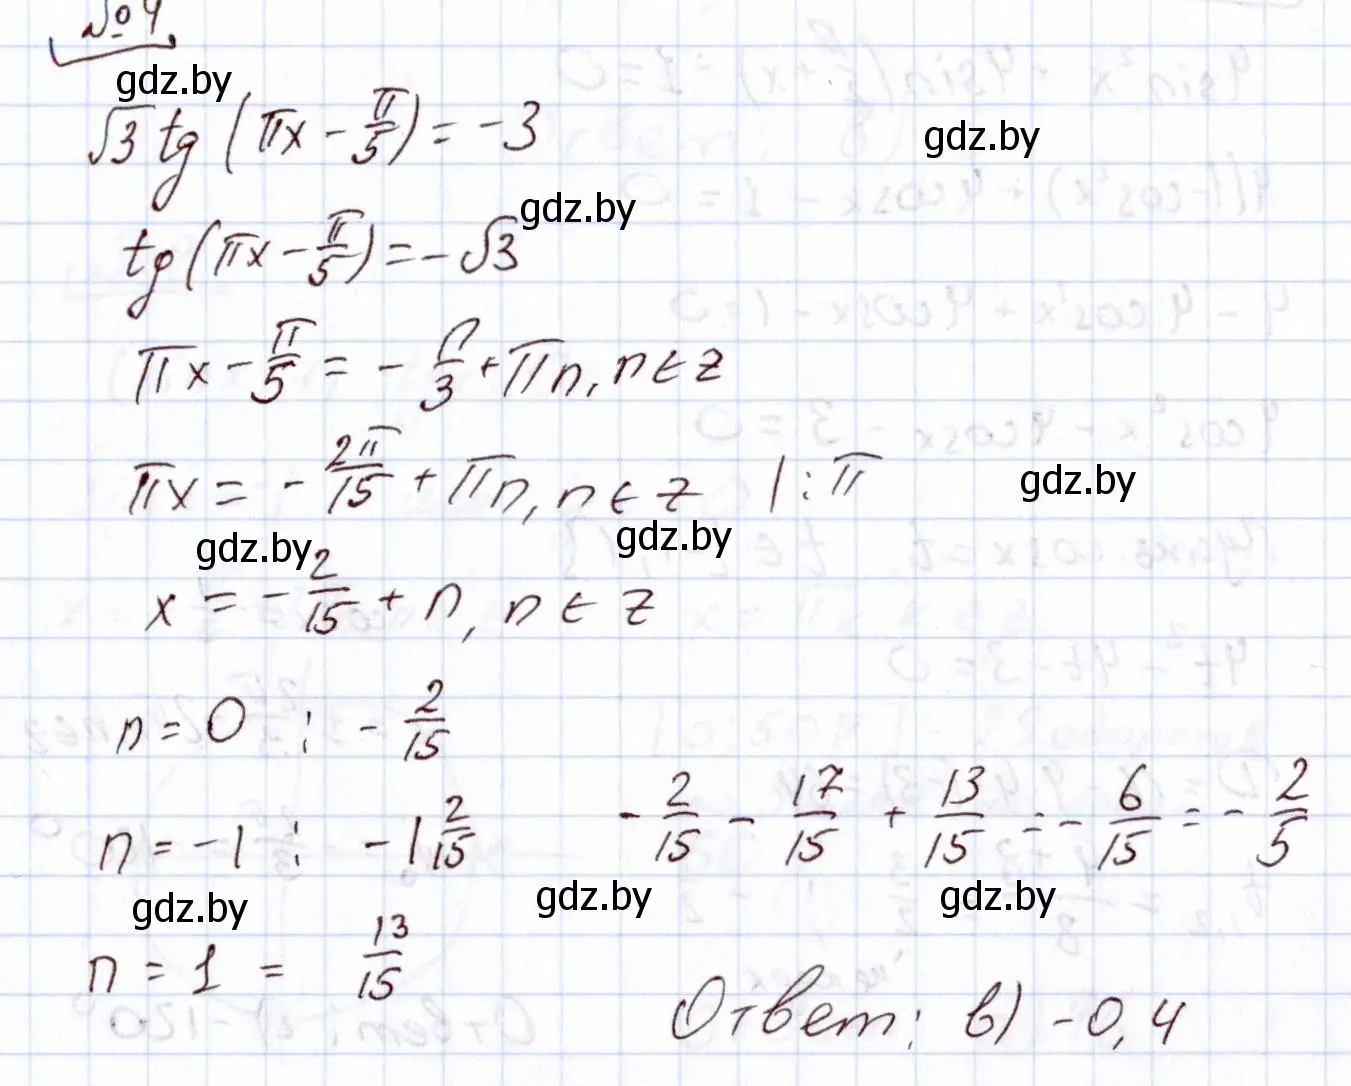 №4
gdz.by
√3 tg (πx - π/5) = -3
gdz.by
gdz.by
tg (πx - π/5) = -√3
πx - π/5 = - π/3 + πn, n ∈ z
πx = - 2π/15 + πn, n ∈ z | : π
gdz.by
gdz.by
gdz.by
x = - 2/15 + n, n ∈ z
n = 0 : - 2/15
n = -1 : -1 2/15
- 2/15 - 17/15 + 13/15 = - 6/15 = - 2/5
gdz.by
gdz.by
gdz.by
n = 1 = 13/15
Ответ: в) -0,4